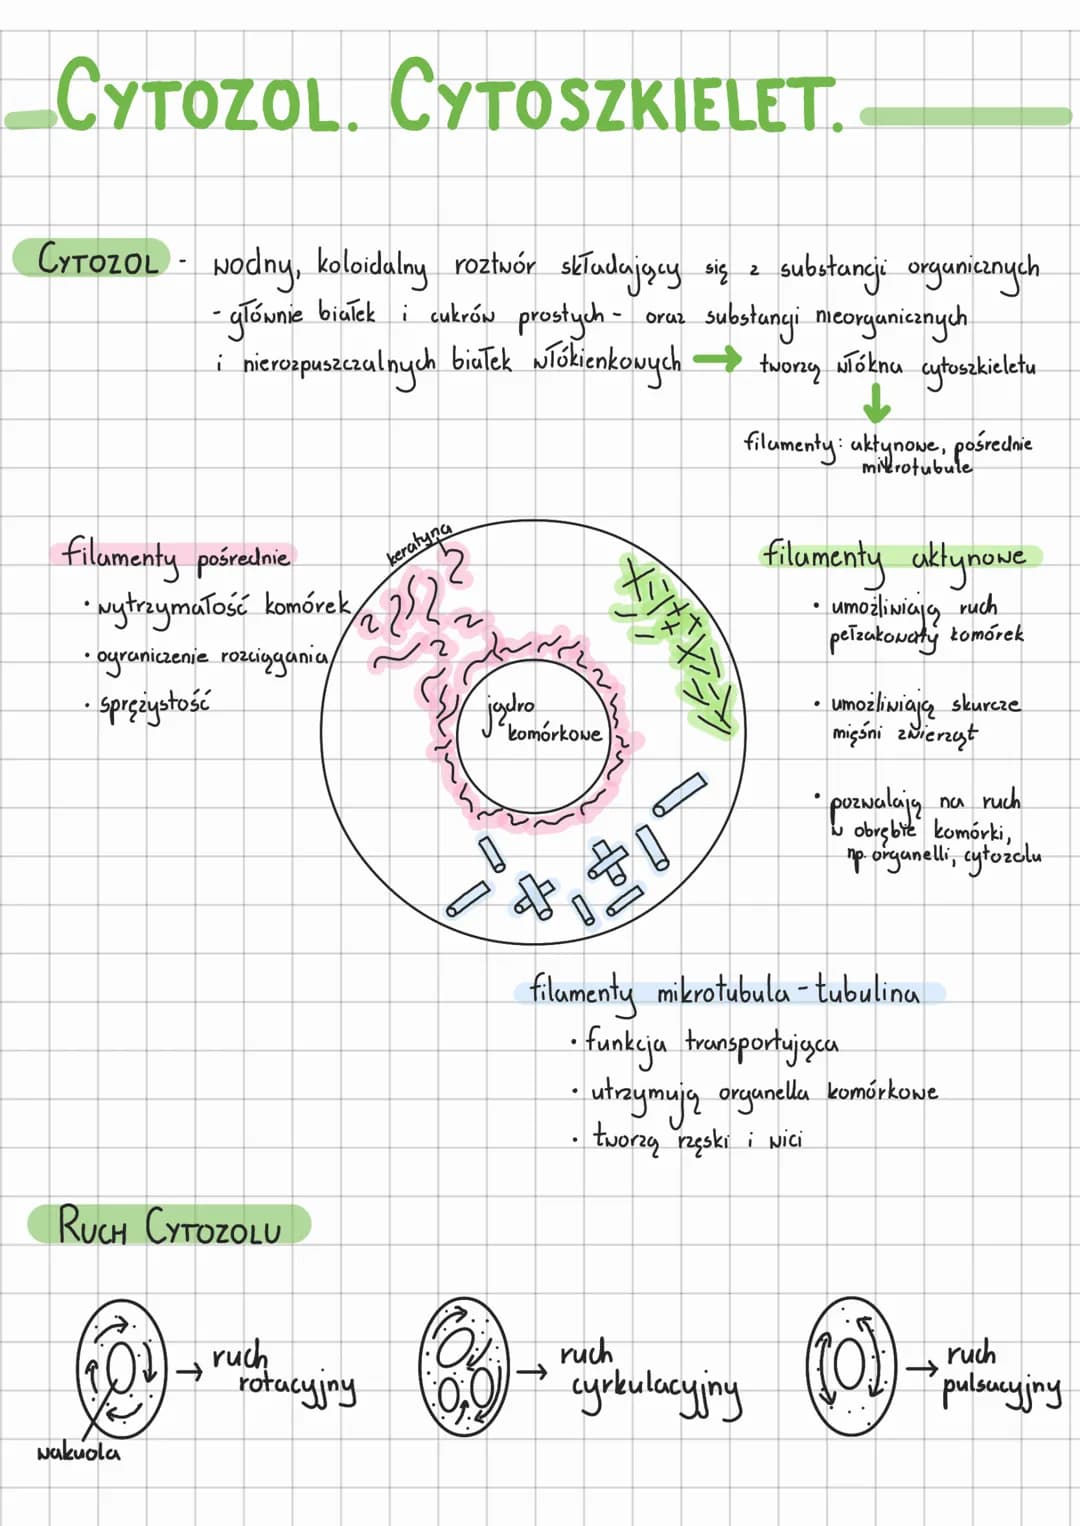 CYTOZOL. CYTOSZKIELET.
CYTOZOL - wodny, koloidalny roztwór składający się z substancji organicznych
- głównie białek i cukrów prostych - oraz substancji nieorganicznych
i nierozpuszczalnych białek włókienkowych → tworzą włókna cytoszkieletu
↓
filamenty: aktynowe, pośrednie
mikrotubule
filamenty pośrednie
• wytrzymałość komórek
• ograniczenie rozciągania
• sprężystość
keratyna
jądro
komórkowe
filamenty aktynowe
• umożliwiają ruch
pełzakowaty komórek
• umożliwiają skurcze
mięśni zwierząt
• pozwalają na ruch
w obrębie komórki,
np. organelli, cytozolu
filamenty mikrotubula - tubulina
• funkcja transportująca
• utrzymują organella komórkowe
• tworzą rzęski i wici
RUCH CYTOZOLU
→ ruch
rotacyjny
wakuola
→ ruch
cyrkulacyjny
→ ruch
pulsacyjny